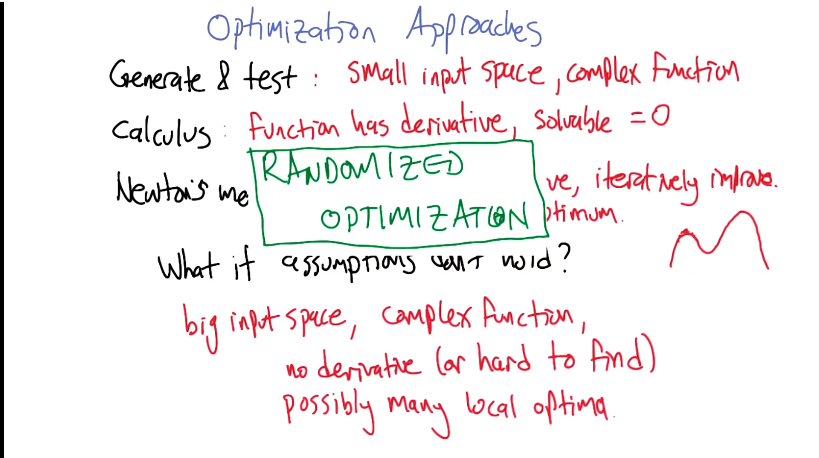 Optimization Approaches
Generate & test : small input space, complex function
Calculus : function has derivative, solvable = 0
RANDOMIZED
Newton's me ve, iteratively improve.
OPTIMIZATION timum.
What if assumptions don't hold?
big input space, complex function,
no derivative (or hard to find)
possibly many local optima.